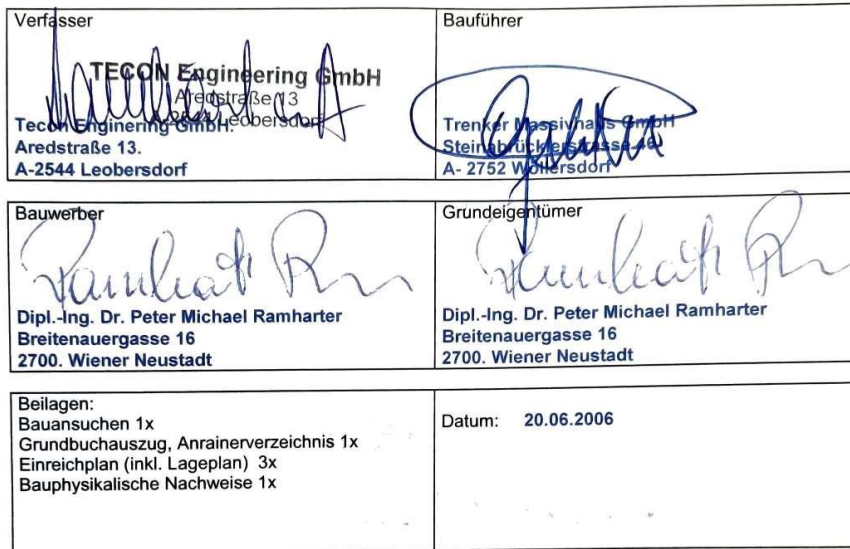 Verfasser
TECON Engineering GmbH
Aredstraße 13
Leobersdorf
Tecon Enginering GmbH.
Aredstraße 13.
A-2544 Leobersdorf
Bauführer
Trenker Massivhaus GmbH
Steinabrücklerstrasse 46
A- 2752 Wöllersdorf
Bauwerber
Ramharter
Dipl.-Ing. Dr. Peter Michael Ramharter
Breitenauergasse 16
2700. Wiener Neustadt
Grundeigentümer
Ramharter
Dipl.-Ing. Dr. Peter Michael Ramharter
Breitenauergasse 16
2700. Wiener Neustadt
Beilagen:
Bauansuchen 1x
Grundbuchauszug, Anrainerverzeichnis 1x
Einreichplan (inkl. Lageplan) 3x
Bauphysikalische Nachweise 1x
Datum: 20.06.2006